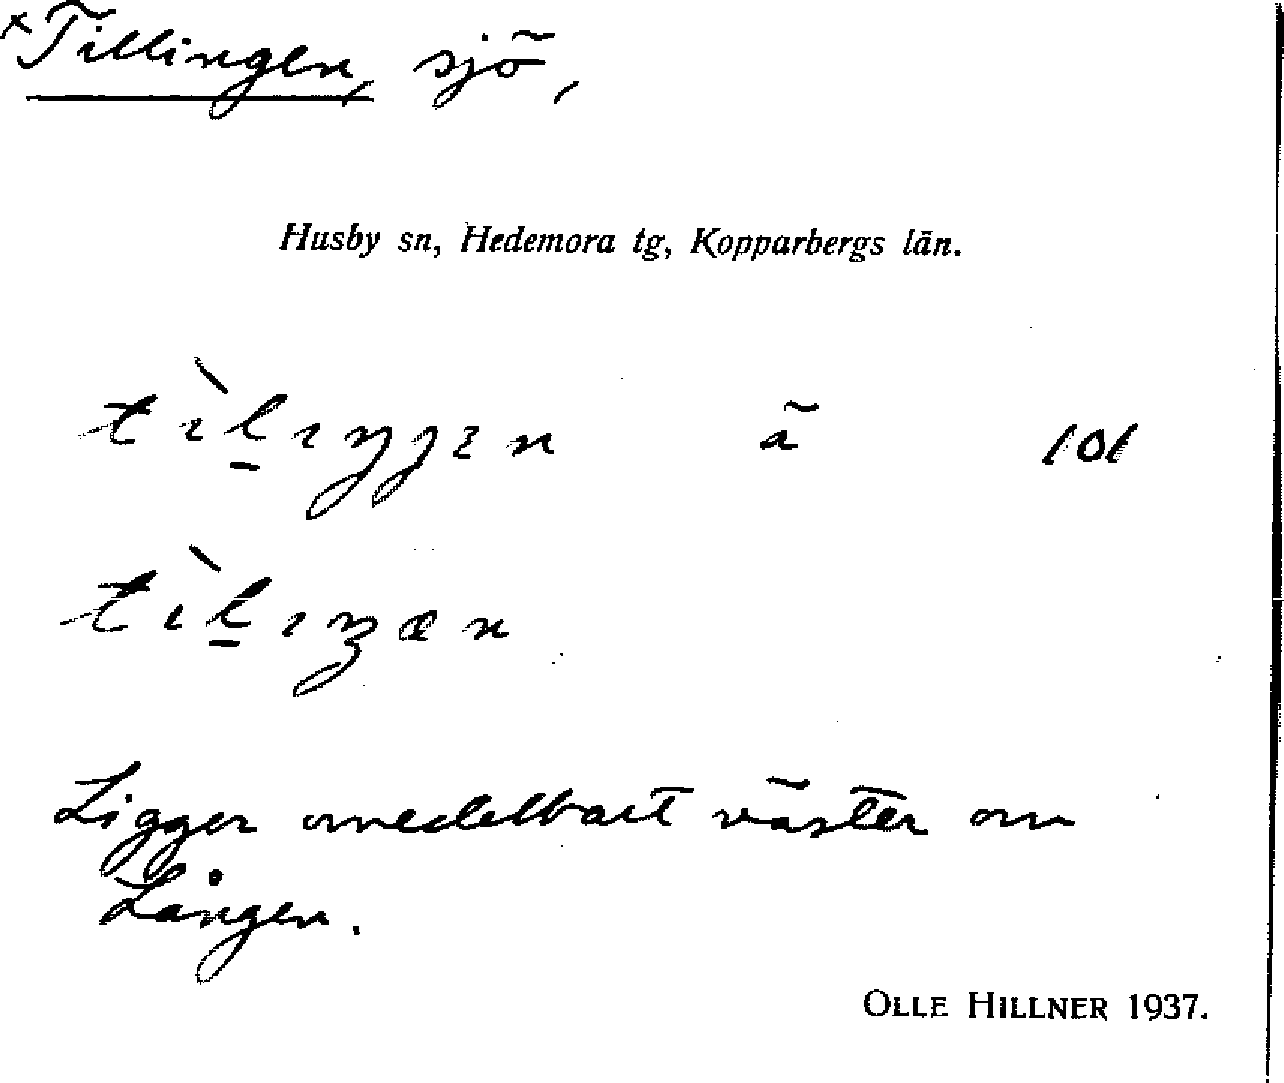 ×Tillingen, sjö,
Husby sn, Hedemora tg, Kopparbergs län.
ä 101
Ligger omedelbart väster om
Lången.
OLLE HILLNER 1937.